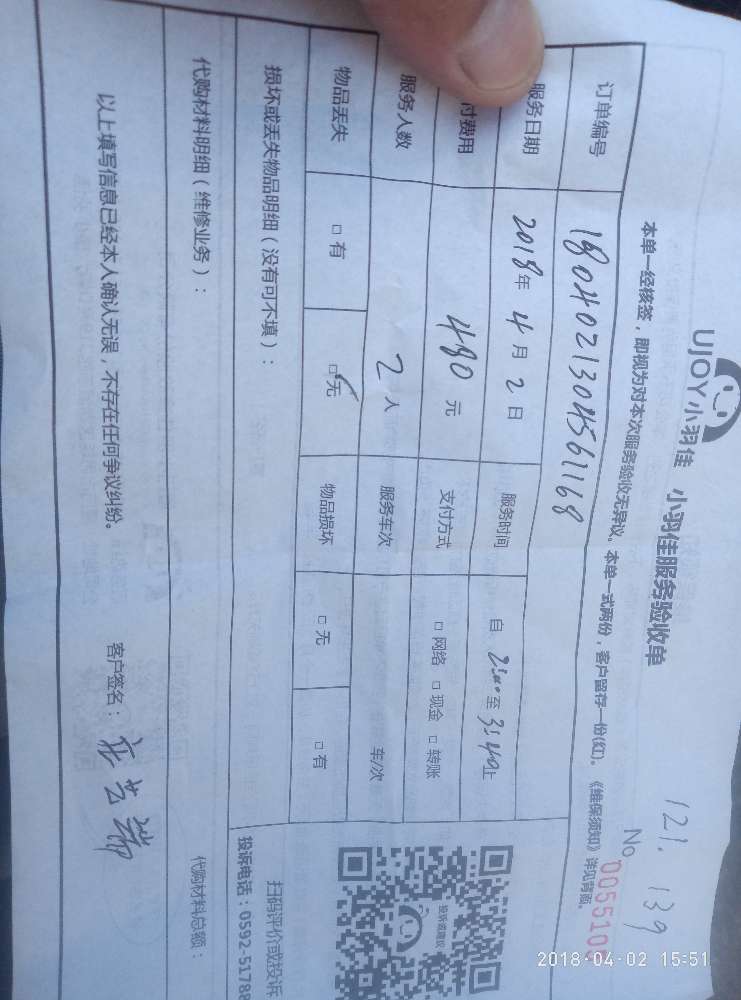 UJOY小羽佳 小羽佳服务验收单
121. 139
本单一经核签，即视为对本次服务验收无异议。本单一式两份，客户留存一份(红)。《维保须知》详见背面。
No 0055100
订单编号 1804021304561168
服务日期 2018年 4 月 2 日 服务时间 自 2:00 至 3:40止
付费用 480 元 支付方式 □ 网络 □ 现金 □ 转账
服务人数 2 人 服务车次 车/次
物品丢失 □ 有 □ 无 物品损坏 □ 无 □ 有
损坏或丢失物品明细（没有可不填）：
投诉或建议
扫码评价或投诉
投诉电话：0592-5178
代购材料明细（维修业务）：
代购材料总额：
以上填写信息已经本人确认无误，不存在任何争议纠纷。
客户签名：
2018-04-02 15:51